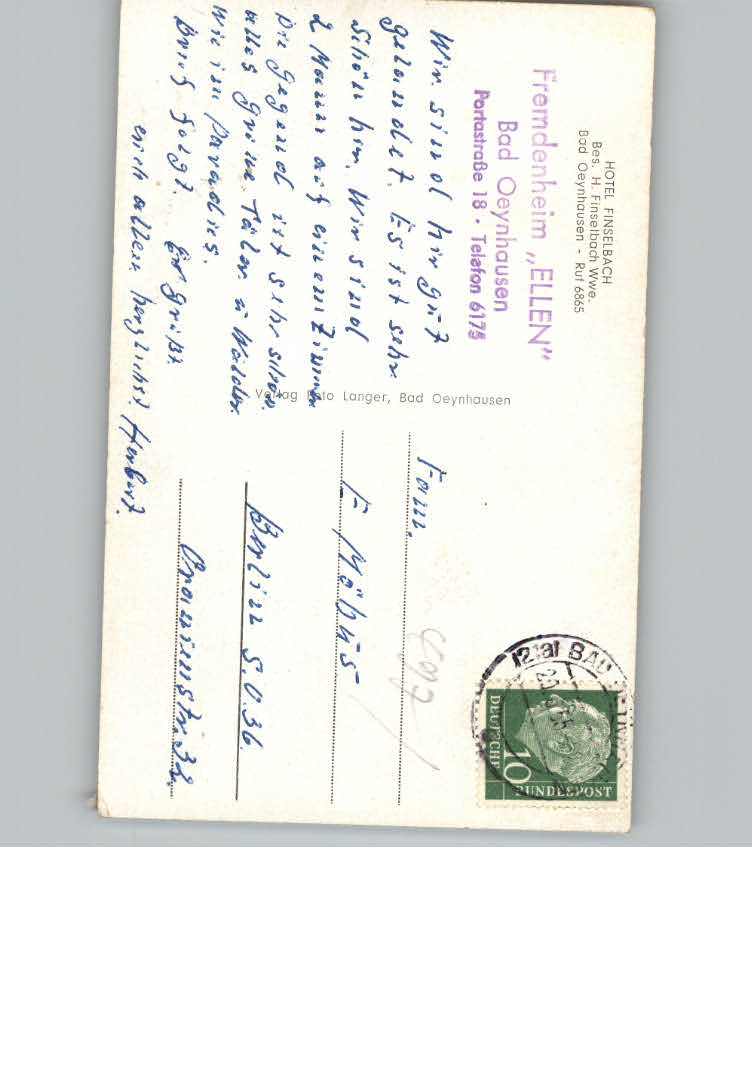 HOTEL FINSELBACH
Bes. H. Finselbach Wwe.
Bad Oeynhausen - Ruf 6865
Fremdenheim „ELLEN"
Bad Oeynhausen
Portastraße 18 · Telefon 6175
Wir sind hir gut
gelandet. Es ist sehr
schön hir. Wir sind
2 Mann auf einem Zimmer
Die Gegend ist sehr schön.
alles Grün. Täler u Wälder.
Wie im Paradies.
Brief folgt. Es grüßt
euch allen herzlichst Herbert.
Verlag Foto Langer, Bad Oeynhausen
Fam.
F Möbus
Berlin S.O. 36
Oranienstr. 32.
697
(21a) BAD
DEUTSCHE
BUNDESPOST
10